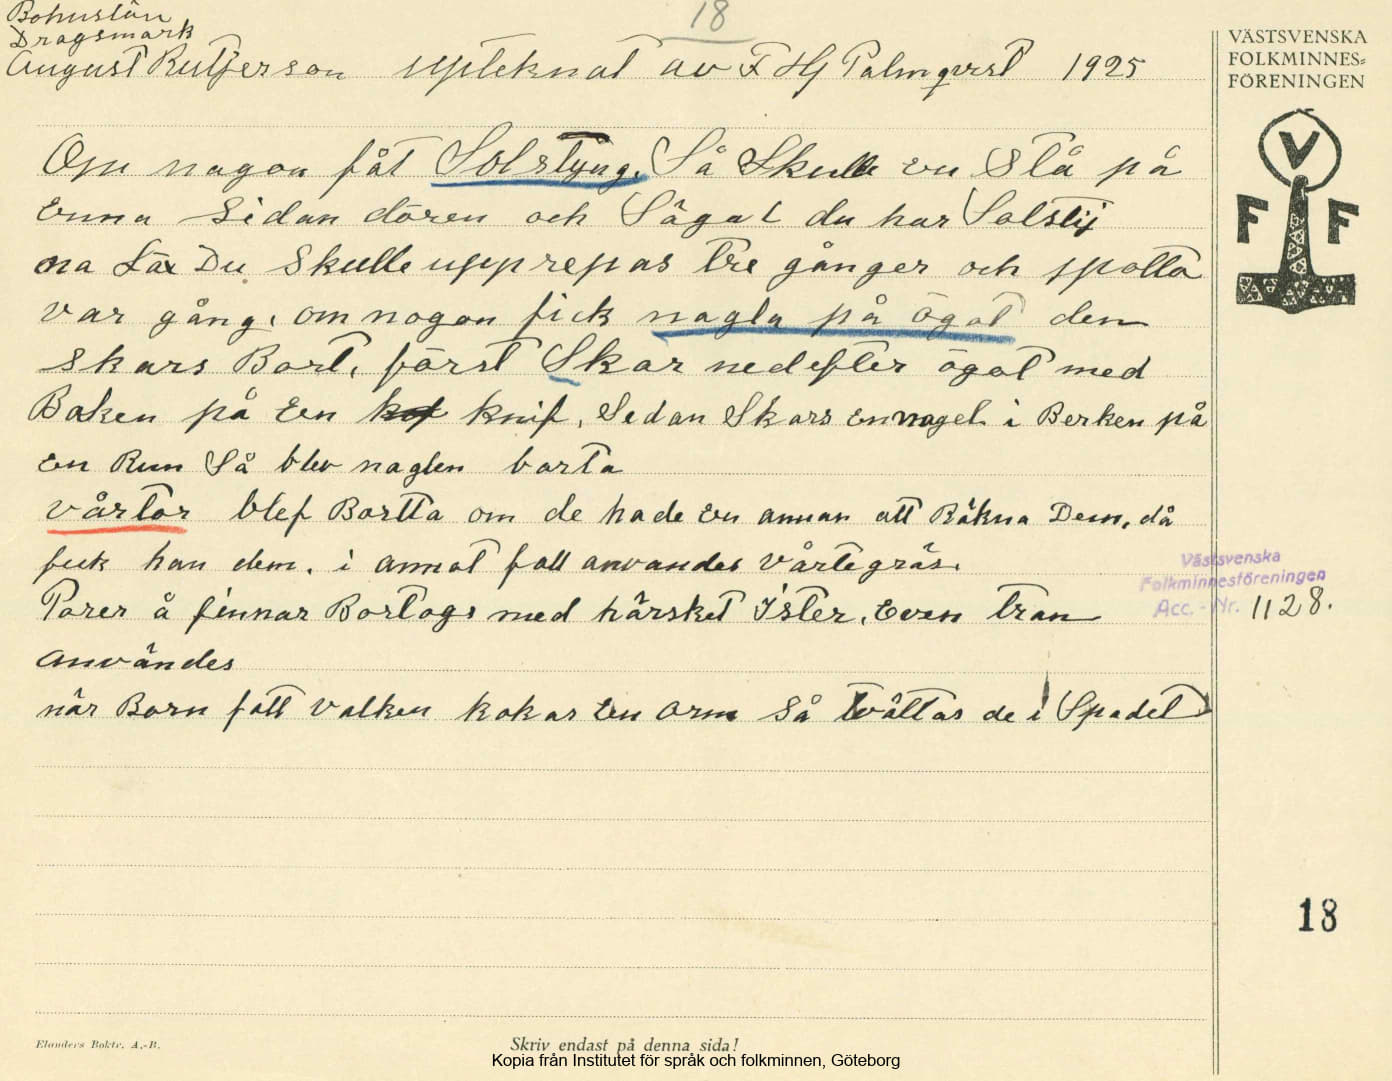 Bohuslän
Dragsmark
18
August Rutgerson upteknat av F Hj Palmqvist 1925
VÄSTSVENSKA
FOLKMINNES=
FÖRENINGEN
V
F F
Om nagon fåt Solstyng. Så Skulle en Stå på
enna Sidan dören och Sägat du har Solstij
na Lär Du Skulle upprepas tre gånger och spotta
var gång. om nogon fick nagla på ögat den
skars Bort. först Skar nedefter ögat med
Baken på en knif. Sedan Skars en nagel i Berken på
en Run Så blev naglen borta
vårtor blef Bortta om de hade en annan att Räkna Dem, då
fick han dem. i annat fall anvandes vårtegräs.
Porer å finnar Bortogs med härsket Ister. Even tran
Användes
när Barn fått valken kokas en orm så tvättas de i Spadet
Västsvenska
Folkminnesföreningen
Acc. - Nr. 1128.
18
Elanders Boktr. A.-B.
Skriv endast på denna sida!
Kopia från Institutet för språk och folkminnen, Göteborg